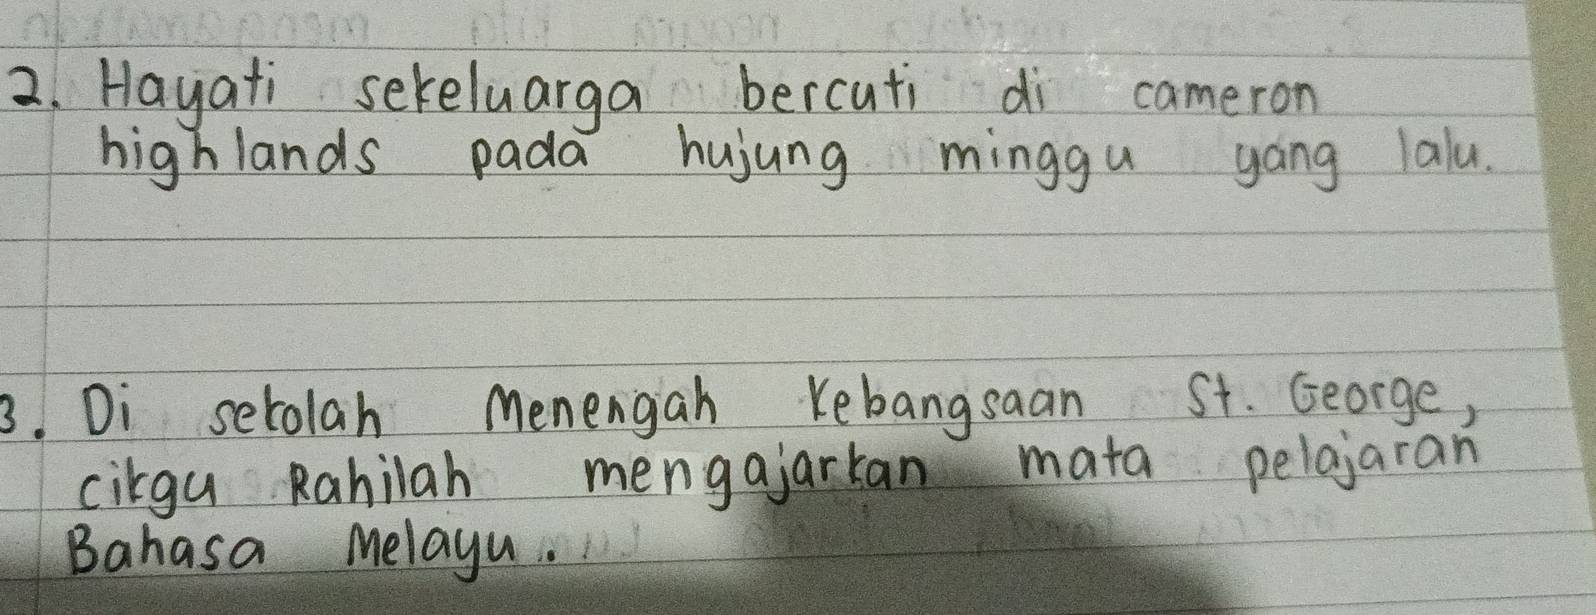 2. Hayati sekeluarga bercuti di cameron
highlands pada hujung minggu yang lalu.
3. Di sekolah Menengah Kebangsaan St. George,
cikgu Rahilah mengajarkan mata pelajaran
Bahasa Melayu.